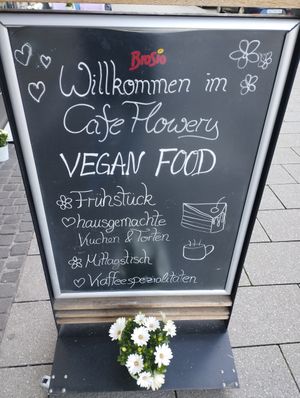 BioSio
Willkommen im
Cafe Flowery
VEGAN FOOD
Frühstück
hausgemachte
Kuchen & Torten
Mittagstisch
Kaffeespezialitäten